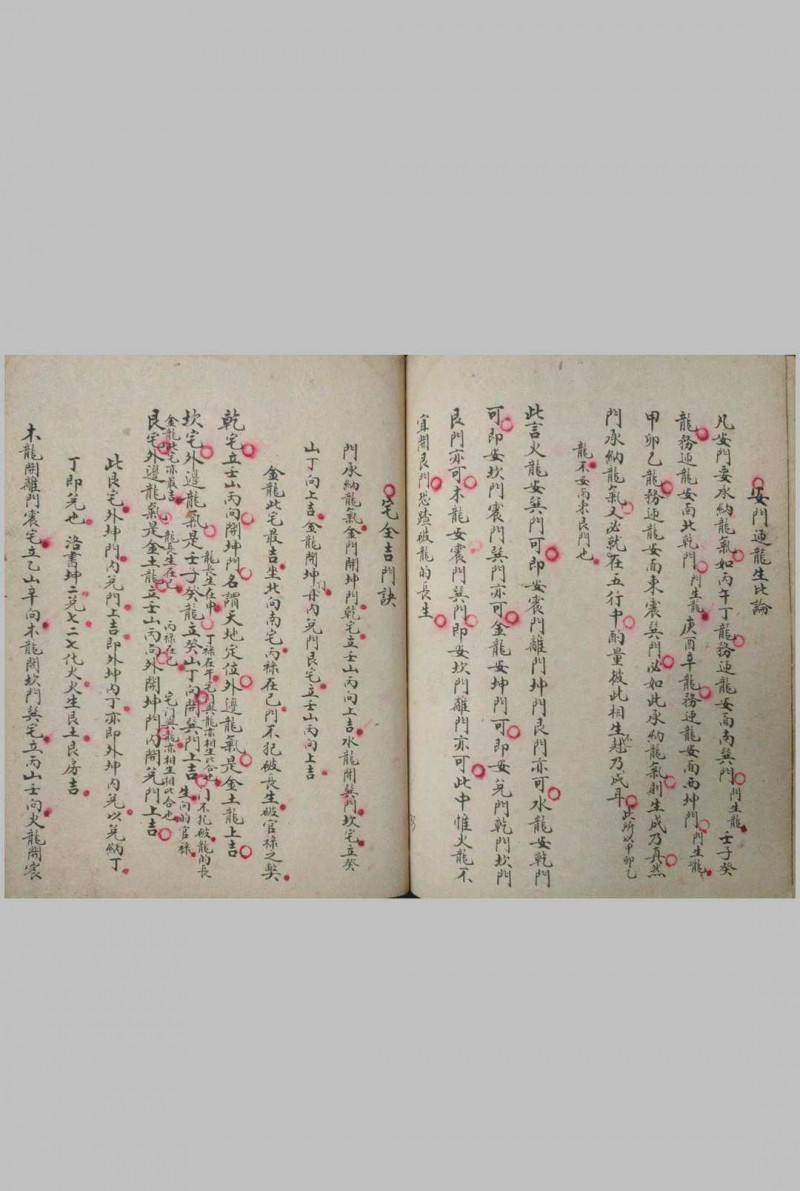 安門迎龍生比論
凡安門要承納龍氣如丙午丁龍務迎龍安高南巽門門生龍壬子癸
龍務迎龍安高北乾門門生龍庚酉辛龍務迎龍安高西坤門門生龍
甲卯乙龍務迎龍安高東震巽門必如此承納龍氣則生成乃真然
門承納龍氣又必就在五行中酌量彼此相生尅乃成耳此所以甲卯乙
龍不安高東艮門也
此言火龍安巽門可即安震門離門坤門艮門亦可水龍安乾門
可即安坎門震門巽門亦可金龍安坤門可即安兌門乾門坎門
艮門亦可木龍安震門巽門即安坎門離門亦可此中惟火龍不
宜開艮門恐蹺破龍的長生
宅全吉門訣
門承納龍氣金門開坤門乾宅立壬山丙向上吉水龍開巽門坎宅立癸
山丁向上吉金龍開坤門內兌門艮宅立壬山丙向上吉
金龍此宅最吉坐北向南宅丙祿在巳門不犯破長生破官祿之弊
乾宅立壬山丙向開坤門名謂天地定位外邊龍氣是金土龍上吉
龍長生在申丁祿在午宅門與龍亦相生比合也門不犯破龍的長
坎宅外邊龍氣是壬子癸龍立癸山丁向開巽門上吉生向的官祿
金龍此宅亦最吉龍長生在巳丙祿在巳宅門與龍亦相生相比合也
艮宅外邊龍氣是金土龍立壬山丙向外開坤門內開兌門上吉
此艮宅外坤門內兌門上吉即外坤內丁亦即外坤內兌以兌納丁
丁即兌也洛書坤二兌七二七化火火生艮土艮房吉
木龍開離門震宅立乙山辛向木龍開坎門巽宅立丙山壬向火龍開震